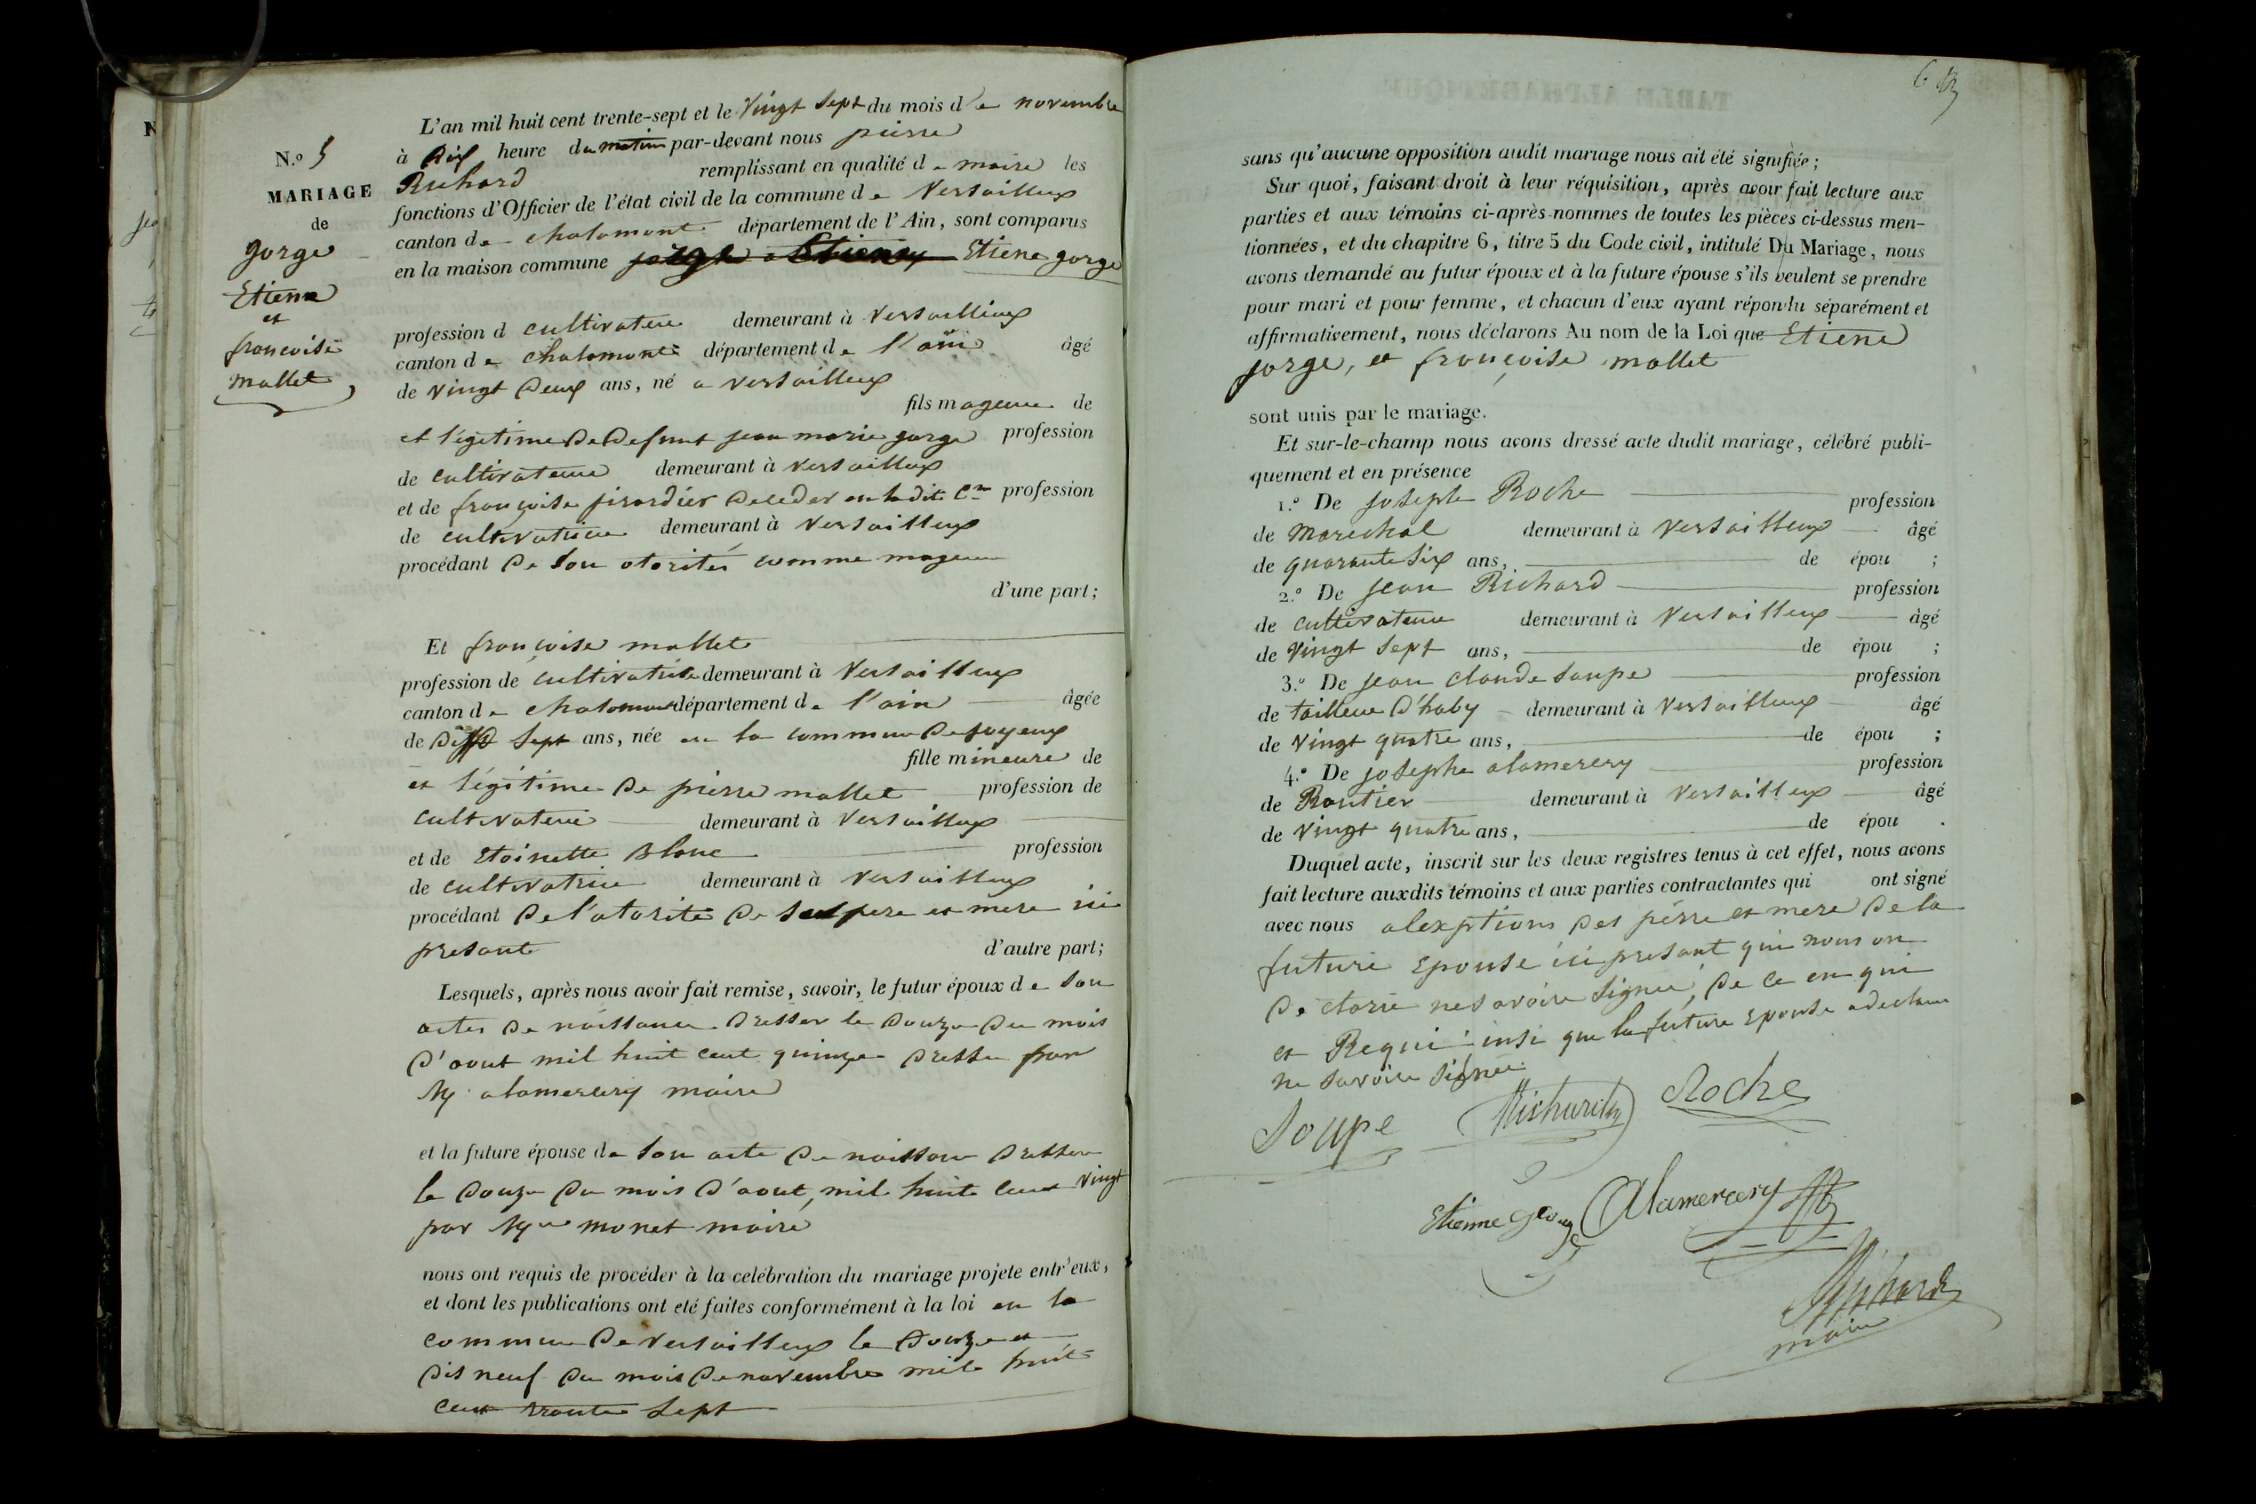 N.º 5
MARIAGE
de
gorge
Etiene
et
francoise
mallet
L'an mil huit cent trente-sept et le vingt sept du mois de novembre
à dix heure du matin par-devant nous pierre
Richard remplissant en qualité de maire les
fonctions d'Officier de l'état civil de la commune de Versailleux
canton de chalamont département de l'Ain, sont comparus
en la maison commune Etiene gorge
profession d cultivateur demeurant à Versailleux
canton de chalamont département de l'ain âgé
de vingt deux ans, né a versailleux
fils mageur de
et légetime de defunt jean marie gorge profession
de cultivateur demeurant à versailleux
et de françoise firardier deceder en ladite Cne profession
de cultivatrice demeurant à Versailleux
procédant de son otorités comme mageur
d'une part;
Et françoise mallet
profession de cultivatrise demeurant à Versailleux
canton de chalamont département de l'ain âgée
de sept ans, née en la commune de joyeux
fille mineure de
et légitime de pierre mallet profession de
cultivateur demeurant à Versailleux
et de Etoinette Blanc profession
de cultivatrice demeurant à Versailleux
procédant de l'otorité de pere et mere ici
presant d'autre part;
Lesquels, après nous avoir fait remise, savoir, le futur époux de son
actes de naissance dresser le douze du mois
d'aout mil huit cent quinze dresser par
Mr alamercery maire
et la future épouse de son acte de naissance dresser
le douze du mois d'aout, mil huit cent vingt
par Mr monet maire
nous ont requis de procéder à la celébration du mariage projete entr'eux,
et dont les publications ont eté faites conformément à la loi en la
commune de versailleux le douze et
dis neuf du mois de novembre mile huit
cent trante sept
sans qu'aucune opposition audit mariage nous ait été signifiée;
Sur quoi, faisant droit à leur réquisition, après avoir fait lecture aux
parties et aux témoins ci-après nommes de toutes les pièces ci-dessus men-
tionnées, et du chapitre 6, titre 5 du Code civil, intitulé Du Mariage, nous
avons demandé au futur époux et à la future épouse s'ils veulent se prendre
pour mari et pour femme, et chacun d'eux ayant répondu séparément et
affirmativement, nous déclarons Au nom de la Loi que Etiene
gorge, et françoise mallet
sont unis par le mariage.
Et sur-le-champ nous avons dressé acte dudit mariage, célébré publi-
quement et en présence
1.º De joseph Roche profession
de Marechal demeurant à Versailleux âgé
de quarante six ans, de épou ;
2.º De jean Richard profession
de cultivateur demeurant à Versailleux âgé
de vingt sept ans, de épou ;
3.º De jean claude soupe profession
de tailleur d'haby demeurant à Versailleux âgé
de vingt quatre ans, de épou ;
4.º De josephe alamercery profession
de Rontier demeurant à Versailleux âgé
de vingt quatre ans, de épou .
Duquel acte, inscrit sur les deux registres tenus à cet effet, nous avons
fait lecture auxdits témoins et aux parties contractantes qui ont signé
avec nous alexptions des pérre et mere de la
future epouse ici presant qui nous on
declarie ne savoire signer, de ce en qui
et Requi insi que la future epouse a declare
ne savoire signer
Soupe Richard Roche
Etienne george Alamercery
Richard
maire